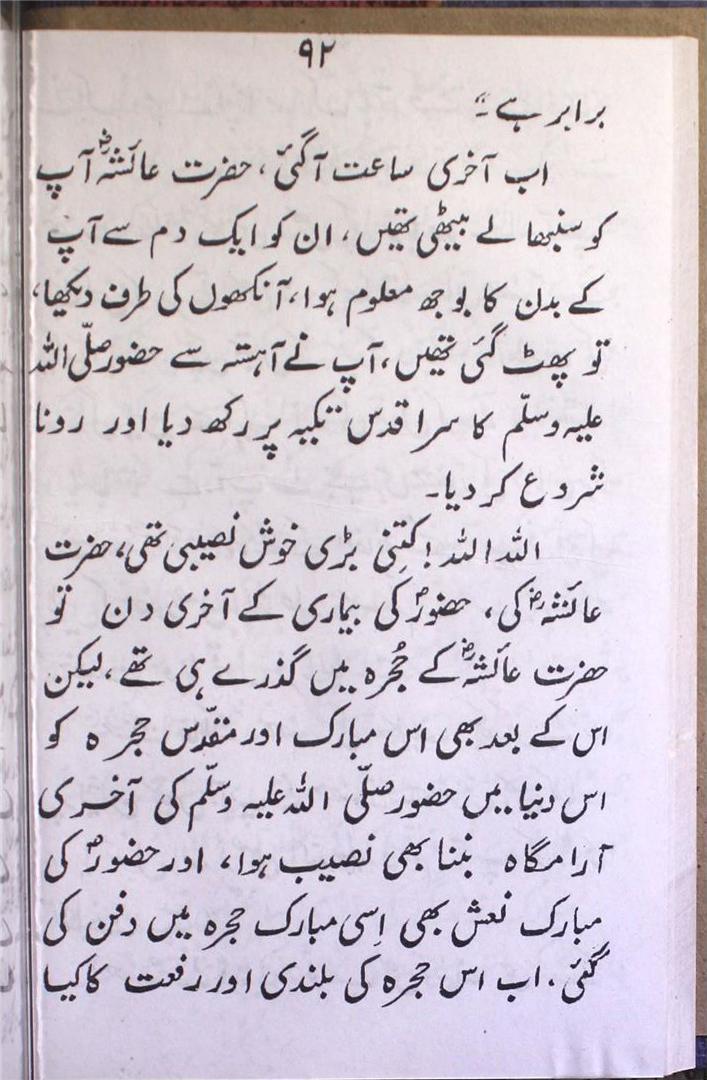 ۹۲
برابر ہے۔“
اب آخری ساعت آگئی، حضرت عائشہؓ آپ
کو سنبھالے بیٹھی تھیں، ان کو ایک دم سے آپ
کے بدن کا بوجھ معلوم ہوا، آنکھوں کی طرف دیکھا،
تو پھٹ گئی تھیں، آپ نے آہستہ سے حضور صلّی اللہ
علیہ وسلّم کا سر اقدس تکیہ پر رکھ دیا اور رونا
شروع کر دیا۔
اللہ اللہ! کتنِی بڑی خوش نصیبی تھی، حضرت
عائشہؓ کی، حضورؐ کی بیماری کے آخری دن تو
حضرت عائشہؓ کے حُجرہ میں گذرے ہی تھے، لیکن
اس کے بعد بھی اس مبارک اور مقدّس حجرہ کو
اس دنیا میں حضور صلّی اللہ علیہ وسلّم کی آخری
آرامگاہ بننا بھی نصیب ہوا، اور حضورؐ کی
مبارک نعش بھی اِسی مبارک حجرہ میں دفن کی
گئی، اب اس حجرہ کی بلندی اور رفعت کا کیا